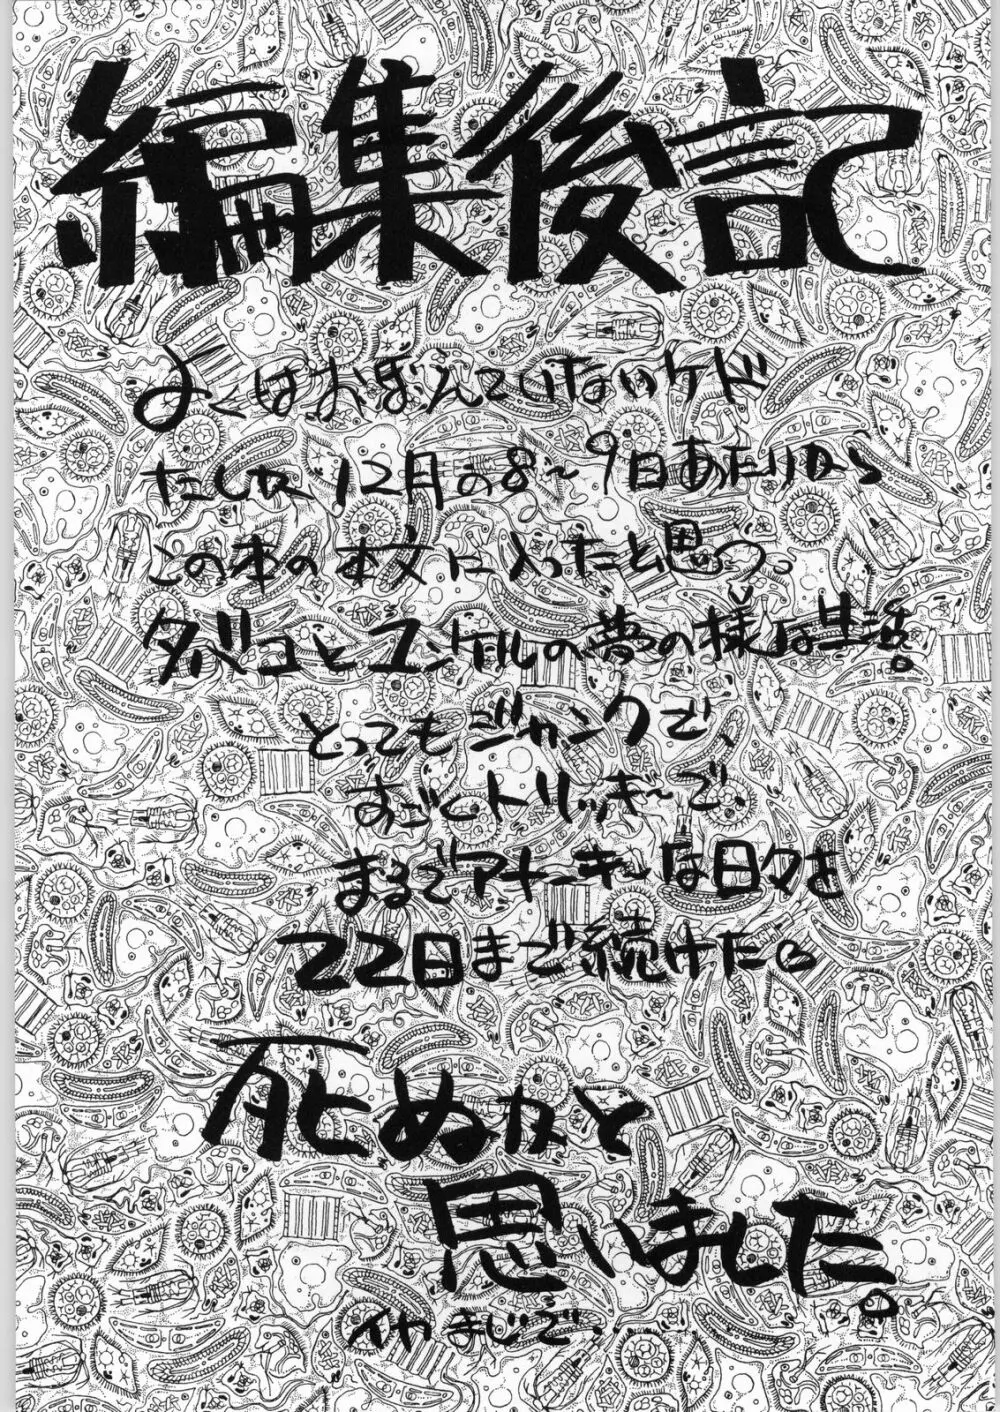 編集後記
よくはおぼえていないケド
たしか12月の8〜9日あたりから
この本の本文に入ったと思う。
タバコとユンケルの夢の様な生活。
とってもジャンクで、
すごくトリッキーで、
まるでアナーキーな日々を
22日まで続けたら
死ぬかと
思いました。
イヤまじで、